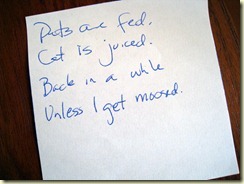 Pets are fed.
Cat is juiced.
Back in a while
Unless I get moosed.